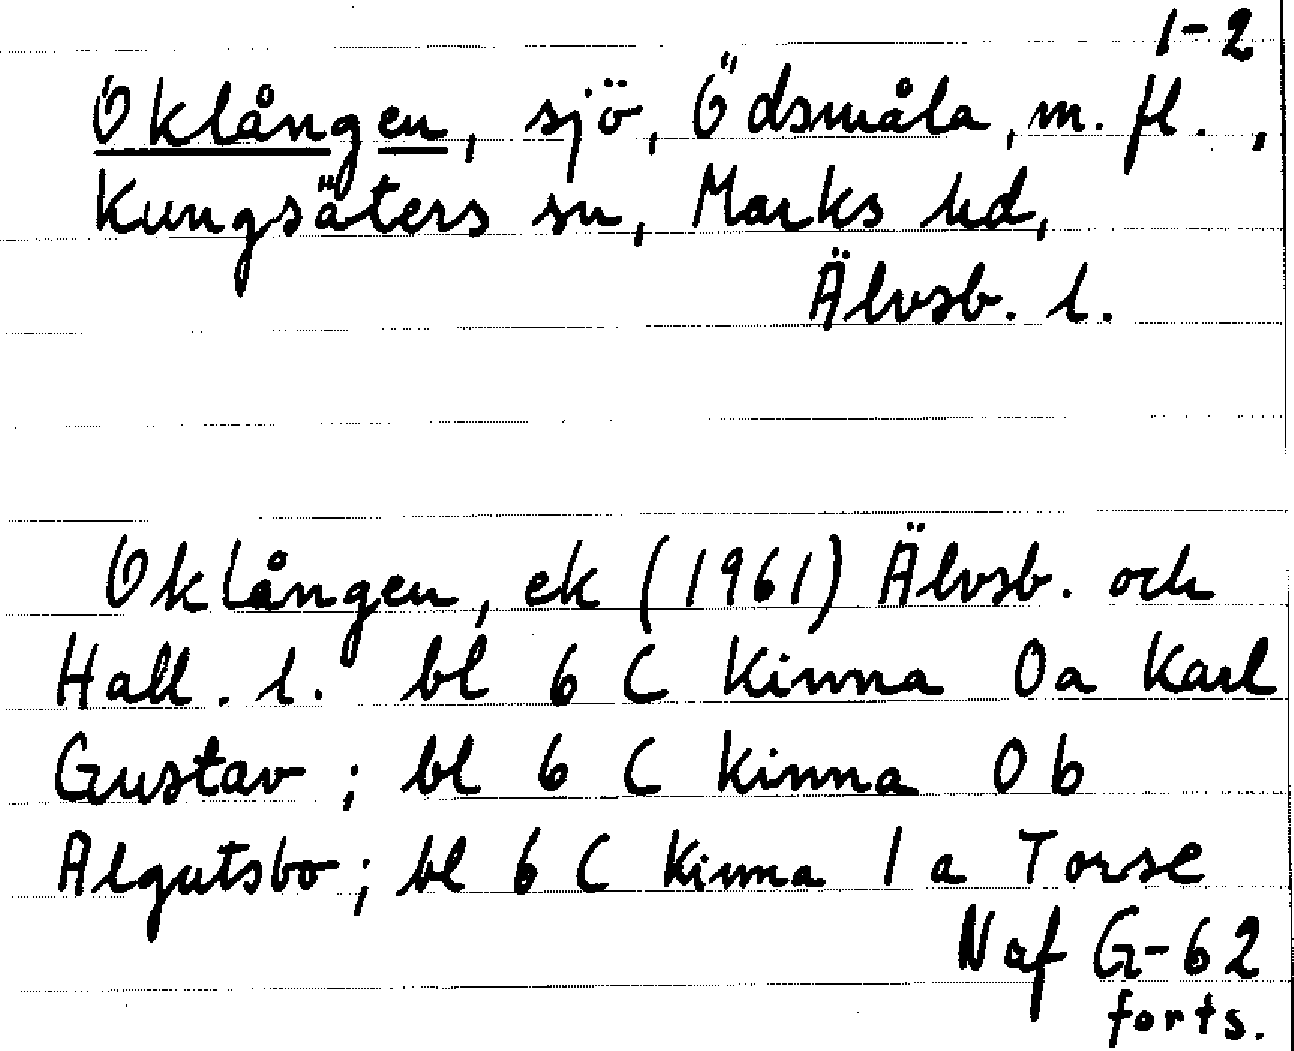 1-2
Oklången, sjö, Ödsmåla, m. fl. ,
Kungsäters sn, Marks hd,
Älvsb. l.
Oklången, ek (1961) Älvsb. och
Hall. l. bl 6 C Kinna 0a Karl
Gustav ; bl 6 C Kinna 0 b
Algutsbo ; bl 6 C Kinna 1 a Torse
Naf G-62
forts.